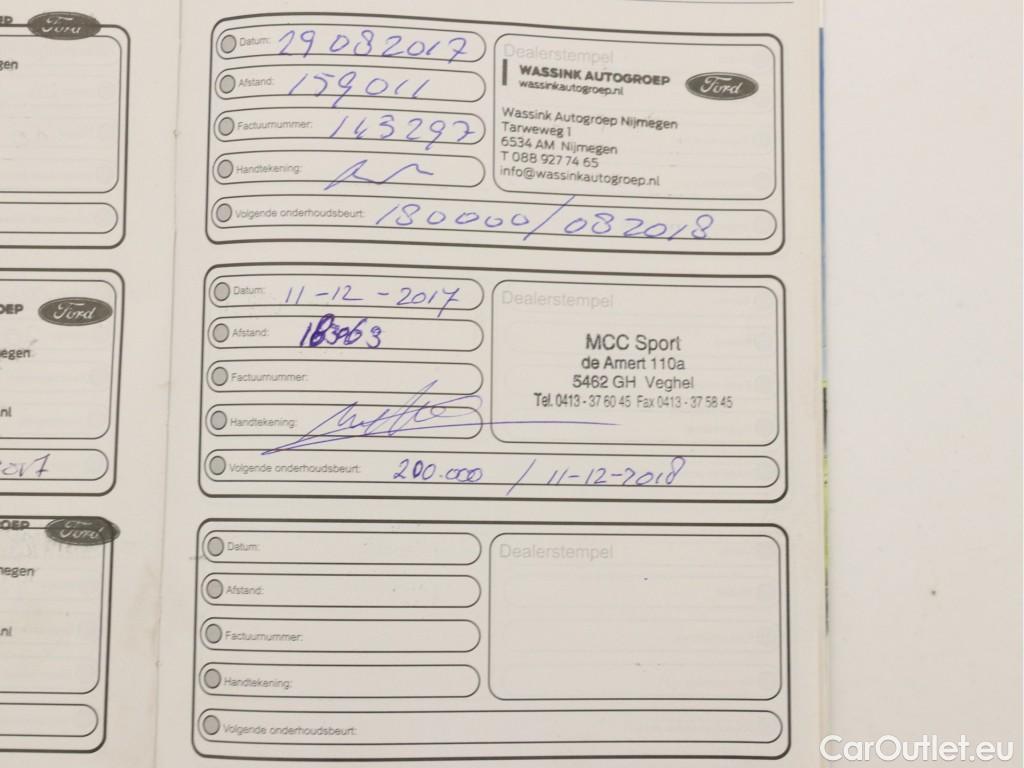 Ford
gen
Datum: 29 08 2017
Afstand: 159011
Factuurnummer: 143297
Handtekening:
Volgende onderhoudsbeurt: 180000/082018
Dealerstempel
WASSINK AUTOGROEP
wassinkautogroep.nl
Ford
Wassink Autogroep Nijmegen
Tarweweg 1
6534 AM Nijmegen
T 088 927 74 65
info@wassinkautogroep.nl
OEP
Ford
egen
nl
Datum: 11-12-2017
Afstand:
Factuurnummer:
Handtekening:
Volgende onderhoudsbeurt: 200.000 / 11-12-2018
Dealerstempel
MCC Sport
de Amert 110a
5462 GH Veghel
Tel. 0413 - 37 60 45 Fax 0413 - 37 58 45
ROEP
Ford
megen
nl
Datum:
Afstand:
Factuurnummer:
Handtekening:
Volgende onderhoudsbeurt:
Dealerstempel
CarOutlet.eu